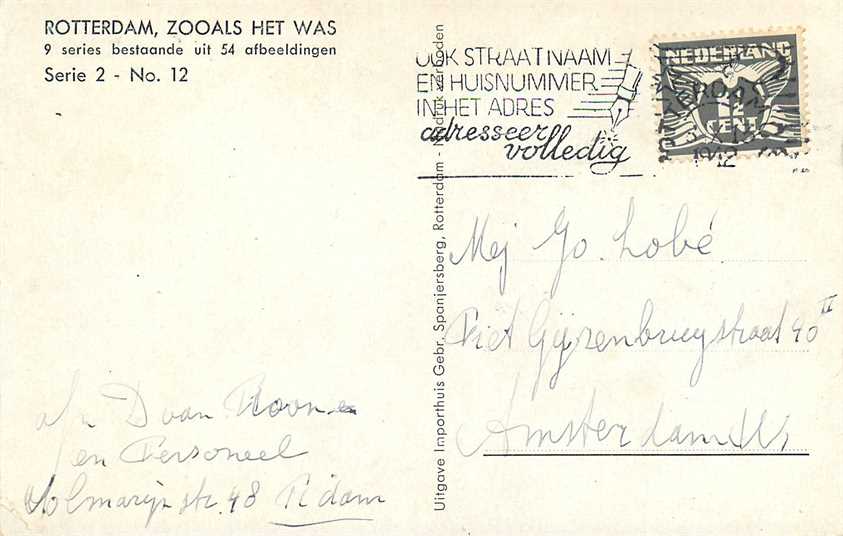 ROTTERDAM, ZOOALS HET WAS
9 series bestaande uit 54 afbeeldingen
Serie 2 - No. 12
OOK STRAATNAAM
EN HUISNUMMER
IN HET ADRES
adresseer
volledig
NEDERLAND
Uitgave Importhuis Gebr. Spanjersberg, Rotterdam - Nadruk verboden
Mej Jo. Lobé
Piet Gijzenbrugstraat 40 II
Amsterdam W.
a/n D van
en Personeel
str. 48 R'dam